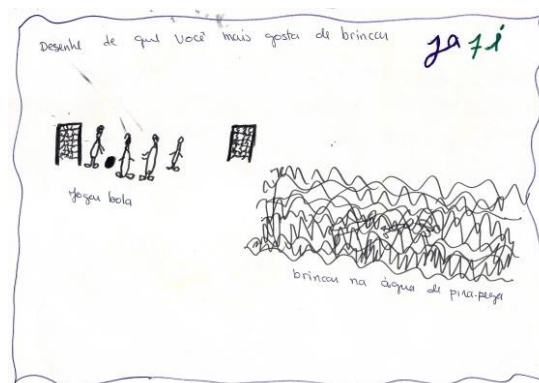 Desenhe de que você mais gosta de brincar
Jogar bola
brincar na água de pira-pega